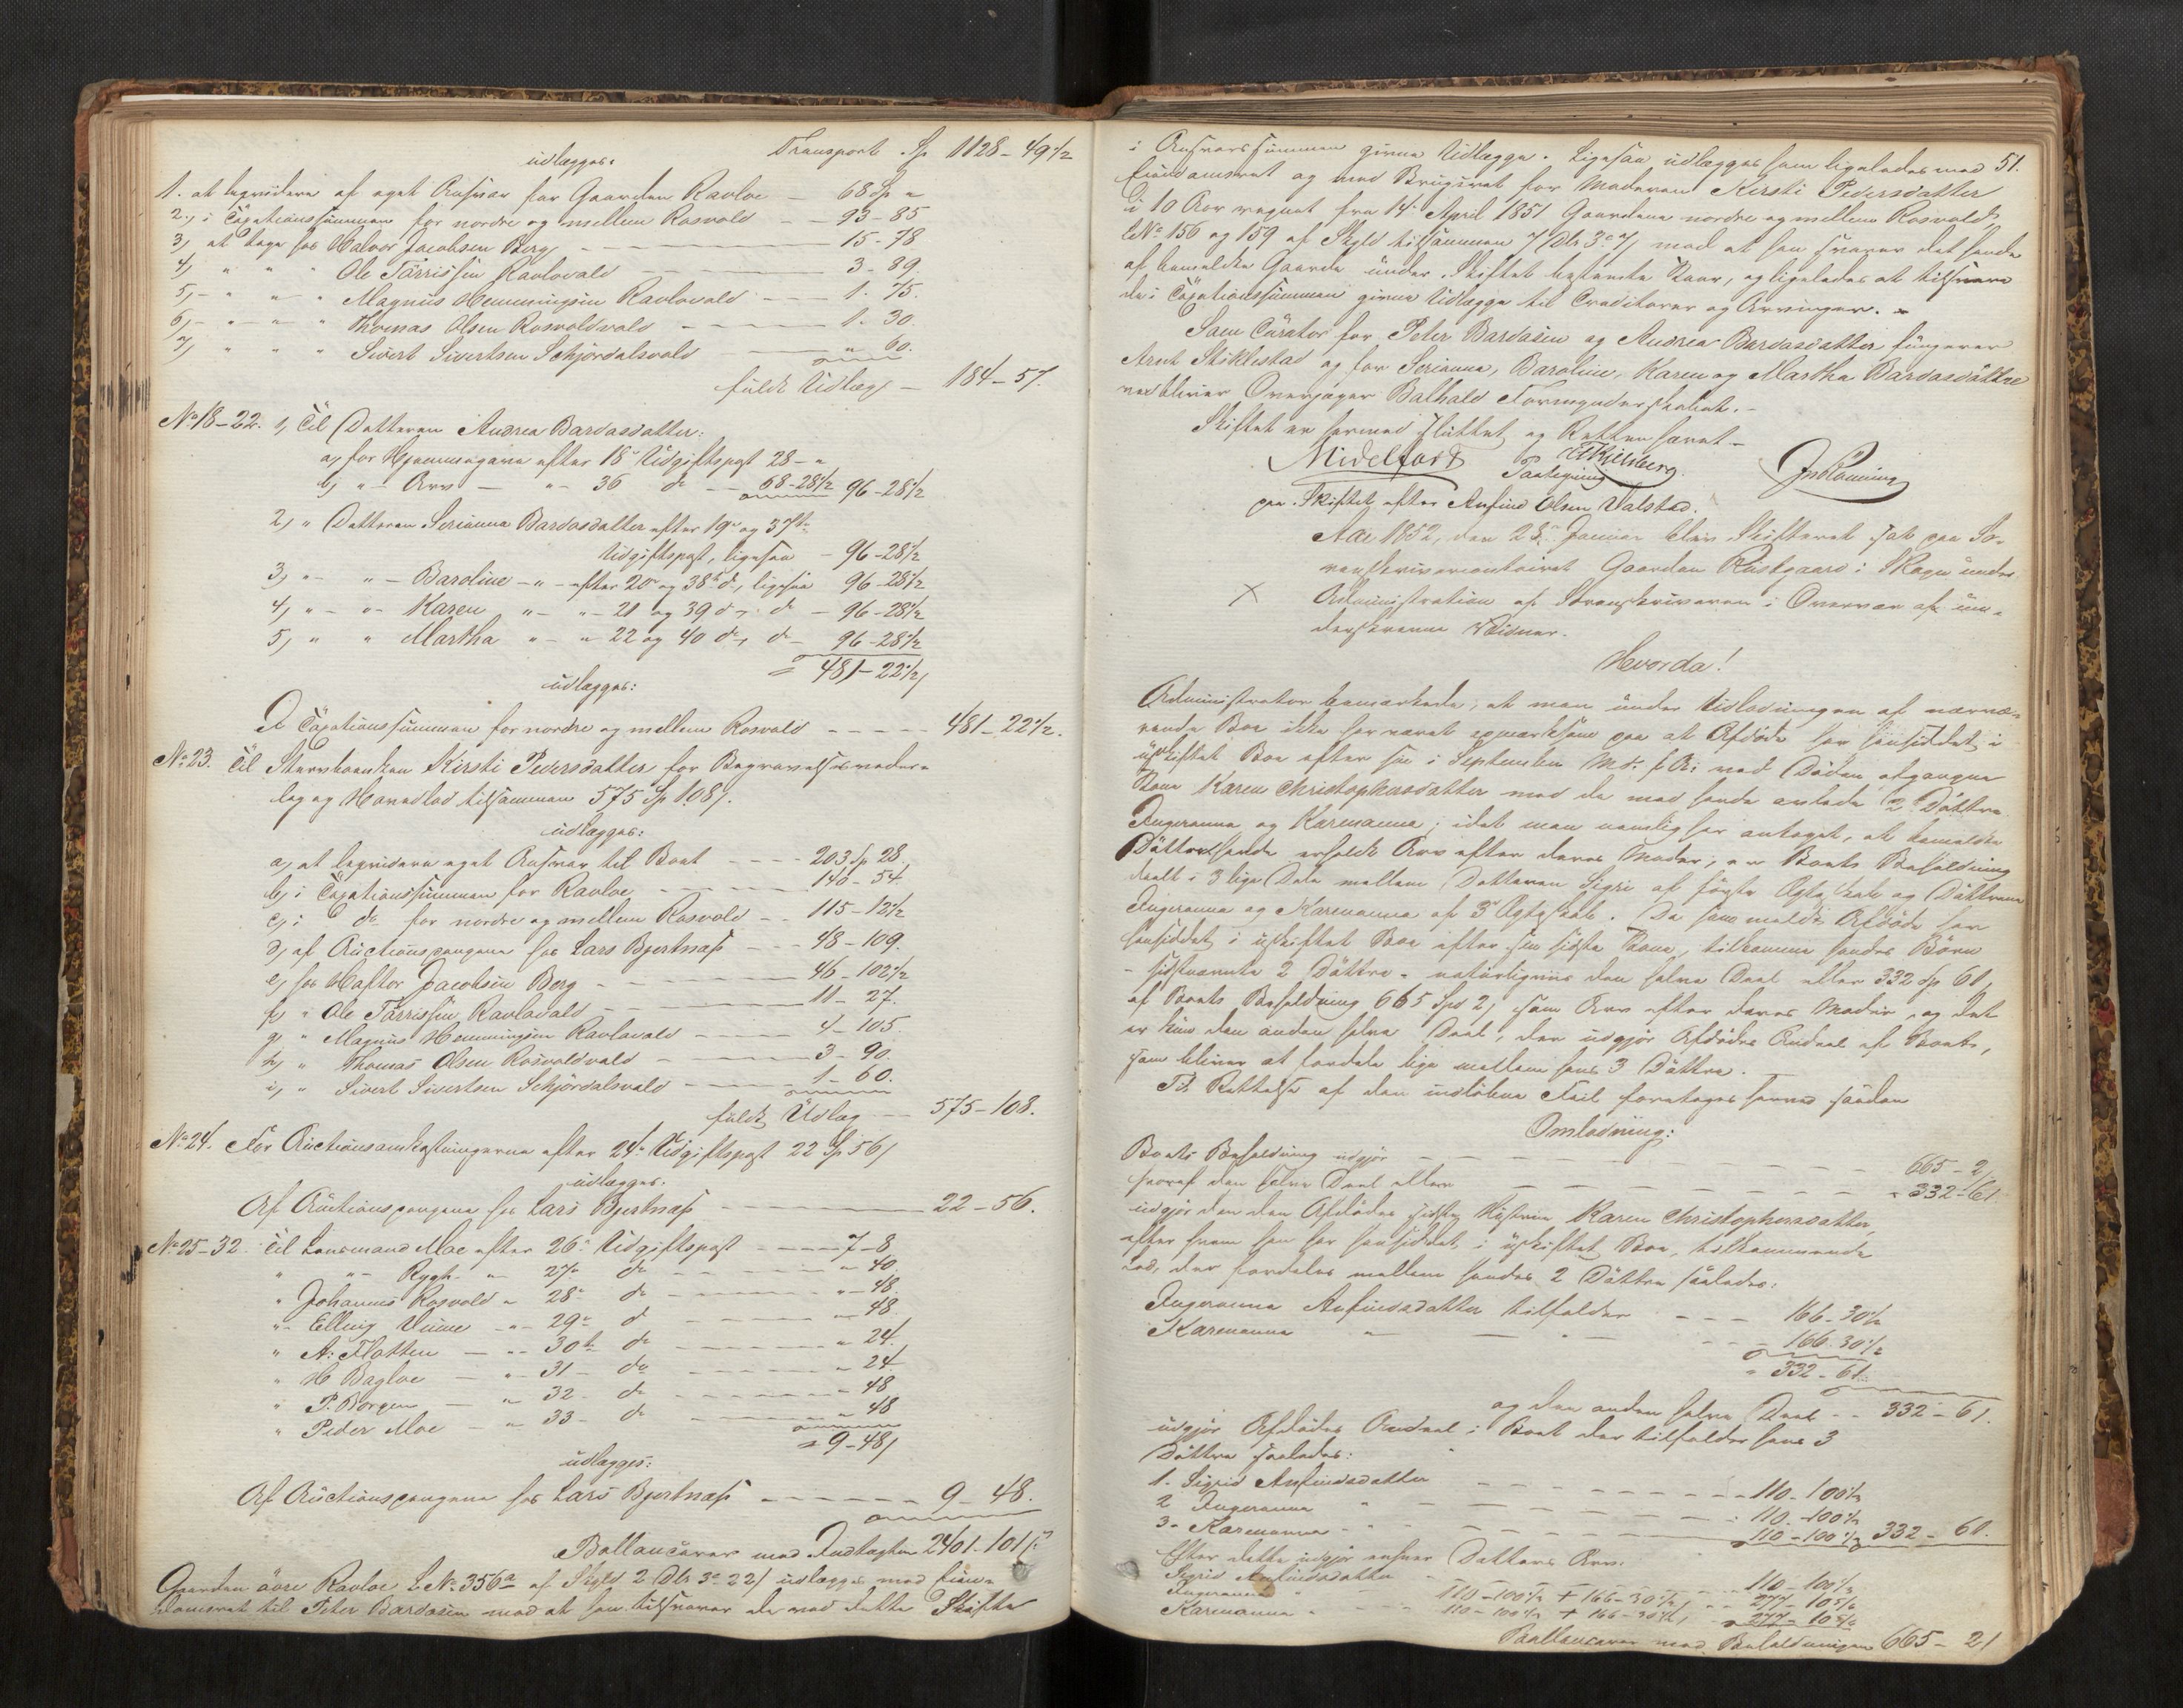 Transport Sp 1128-49½
udlægges:
1. at liqvidere af eget Ansvar for Gaarden Ravloe - 68 Sp "
2, i Taxationssummen for nordre og mellem Rosvold - - 93-85
3, at tage hos Halvor Jacobsen Berg - 15-78
4, " " " Ole Tørrissen Ravlovald - 3-89.
5, - " " " Magnus Hemmingsen Ravlovald - - 1. 75.
6, - " - " Thomas Olsen Rosvoldvald - 1. 30.
7, " " " Sivert Sivertsen Schjördalsvald - " 60.
fuldt Udlæg - 184-57.
No 18-22. 1, Til Datteren Andrea Bardosdatter:
a, for Hjemmegave efter 18de Udgiftspost 28- "
b, " - Arv - " - 36 do - 68-28½ 96-28½
2, " Datteren Serianna Bardosdatter efter 19de og 37te
Udgiftspost, ligesaa - 96-28½
3, " - " - Baroline - " - efter 20de og 38te do, ligesaa 96-28½
4, " - " - Karen " - " - 21 og 39 do, do - 96-28½
5, " " Martha " - " 22 og 40 do, do - 96-28½
= 481-22½,
udlægges:
I Taxationssummen for nordre og mellem Rosvold - - - - - 481-22½.
No 23. Til Stervboenken Kirsti Pedersdatter for Begravelsesveder-
lag og Hovedlod tilsammen 575 Sp 108,.
udlægges:
a, at liqvidere eget Ansvar til Boet - - - - 203 Sp 28.
b, i Taxationssummen for Ravloe - 140-54.
c, i do for nordre og mellem Rosvold - - 115-12½
d, af Auctionspengene hos Lars Bjertnæss - - - 48-109.
e, hos Haftor Jacobsen Berg - - 46-102½
f, " Ole Tørrissen Ravlovald - - 11-27.
g, " Magnus Hemmingsen Ravlovald - 4-105.
h, " Thomas Olsen Rosvoldvald - 3-90.
i, " Sivert Sivertsen Schjördalsvald - 1-60.
fuldt Udlæg - 575-108.
No 24. For Auctionsomkostningerne efter 24de Udgiftspost 22 Sp 56,
udlægges.
Af Auctionspengene hos Lars Bjertnæss - 22-56.
No 25-32. Til Lensmand Moe efter 26de Udgiftspost - - - - 7-8
" " - Rygh " - 27de do - - - - " 40.
" Johannes Rosvold " 28de do - - - - " - 48.
" - Elling Vinne - " - 29de do - " 48.
" A: Flotten - " - 30te do - " 24.
" H Bagloe - " - 31 - do - " 24.
" P. Borgen - " 32 - do - " 48
" Peder Moe - " 33 - do - " 48
= 9-48,
udlægges:
Af Auctionspengene hos Lars Bjertnæss - - - - - - 9-48.
Ballancerer med Indtægten 2401-101,
Gaarden øvre Ravloe LNo 356a af Skyld 2 Dlr 3 " 22, udlægges med Eien-
domsret til Peter Bardosen mod at han tilsvarer de ved dette Skifte
51.
i Ansvarssummen givne Udlægge. Ligesaa udlægges ham ligeledes med
Eiendomsret og med Brugsret for Moderen Kirsti Pedersdatter
i 10 Aar regnet fra 14 April 1851 Gaardene nordre og mellem Rosvold,
LNo 156 og 159 af Skyld tilsammen 7 Dlr 3 " 7, mod at han svarer det hende
af bemeldte Gaarde under Skiftet bestemte Kaar, og ligeledes at tilsvare
de i Taxationssummen givne Udlægge til Creditorer og Arvinger. -
Som Curator for Peter Bardosen og Andrea Bardosdatter fungerer
Arnt Stiklestad og for Serianna, Baroline, Karen og Martha Bardosdøttre
vedbliver Overjæger Balhald Formynderskabet. -
Skiftet er hermed sluttet og Retten hævet -
Midelfart
Paategning
paa Skiftet efter Anfind Olsen Valstad.
Aar 1852, den 28 Januar blev Skifteret sat paa So-
renskrivercontoiret Gaarden Rustgaard i Skogn under
X Administration af Sorenskriveren i Overvær af un-
derskrevne Vidner.
Hvorda!
Administrator bemærkede, at man under Udlodningen af nærvæ-
rende Boe ikke har været opmærksom paa at Afdøde har hensiddet i
uskiftet Boe efter sin i September Md. f. A. ved Døden afgangne
Kone Karen Christophersdatter med de med hende avlede 2 Døttre
Ingeranna og Karenanna; idet man nemlig har antaget, at bemeldte
Døttre havde erholdt Arv efter deres Moder, er Boets Beholdning
deelt i 3 lige Dele mellem Datteren Sigri af første Ægteskab og Døttrene
Ingeranna og Karenanna af 3de Ægteskab. Da som meldt Afdøde har
hensiddet i uskiftet Boe efter sin sidste Kone, tilkomme hendes Børn
- sidstnævnte 2 Døttre - naturligviis den halve Deel eller 332 Sp 61,
af Boets Beholdning 665 Spd 2, som Arv efter deres Moder, og det
er kun den anden halve Deel, der udgjør Afdødes Andeel af Boet,
som bliver at fordele lige mellem hans 3 Døttre. -
Til Rettelse af den indløbne Feil foretages herved saadan
Omlodning:
Boets Beholdning udgjør - - - - - - 665-2,
hvoraf den halve Deel eller - - - - - - " 332-61
udgjør den den Afdødes sidste Hustrue Karen Christophersdatter,
efter hvem han har hensiddet i uskiftet Boe, tilkommende
Lod, der fordeles mellem hendes 2 Døttre saaledes:
Ingeranna Anfindsdatter tilfalder - - - 166-30½
Karenanna " - - - 166-30½
" 332-61.
og den anden halve Deel - - 332-61.
udgjør Afdødes Andeel i Boet der tilfalder hans 3
Døttre saaledes:
1. Sigrid Anfindsdatter - - - - - - 110-100⅓
2 Ingeranna " - - - - - - 110-100⅓
3 - Karenanna - " - - - - - 110-100⅓ 332-61.
Efter dette udgjør enhver Datters Arv:
Sigrid Anfindsdatter - - - - - - 110-100⅓
Ingeranna " - - 110-100⅓ + 166-30½, - - 277-10⅚
Karenanna " - - 110-100⅓ + 166-30½, - 277-10⅚
Ballancerer med Beholdningen 665-2,